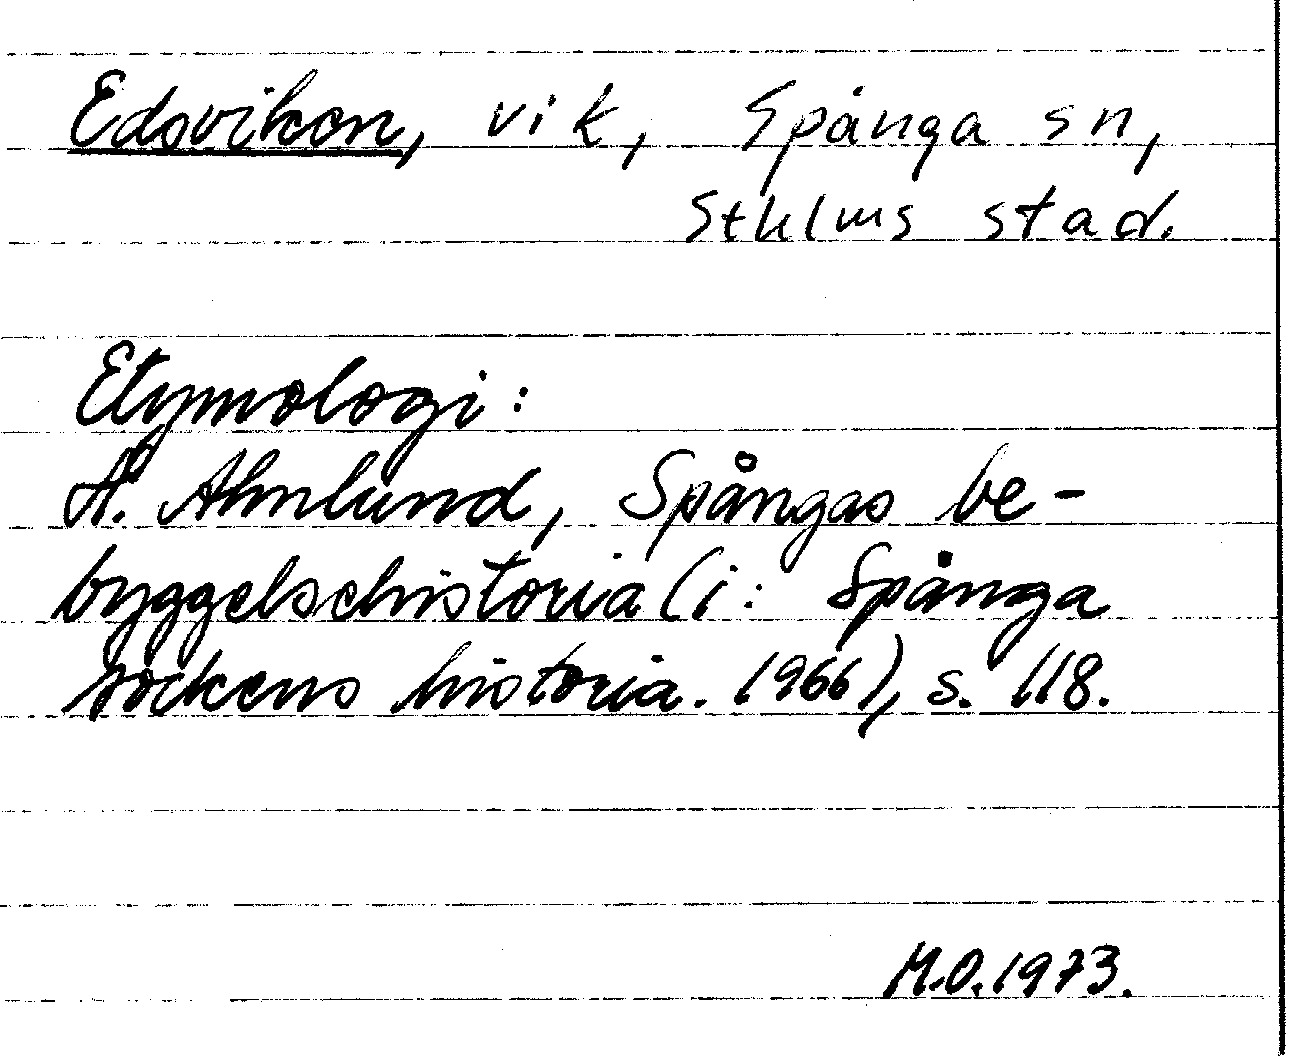 Edsviken, vik, Spånga sn,
Sthlms stad.
Etymologi:
H. Ahnlund, Spångas be-
byggelsehistoria (i: Spånga
sockens historia. 1966), s. 118.
M.O. 1973.